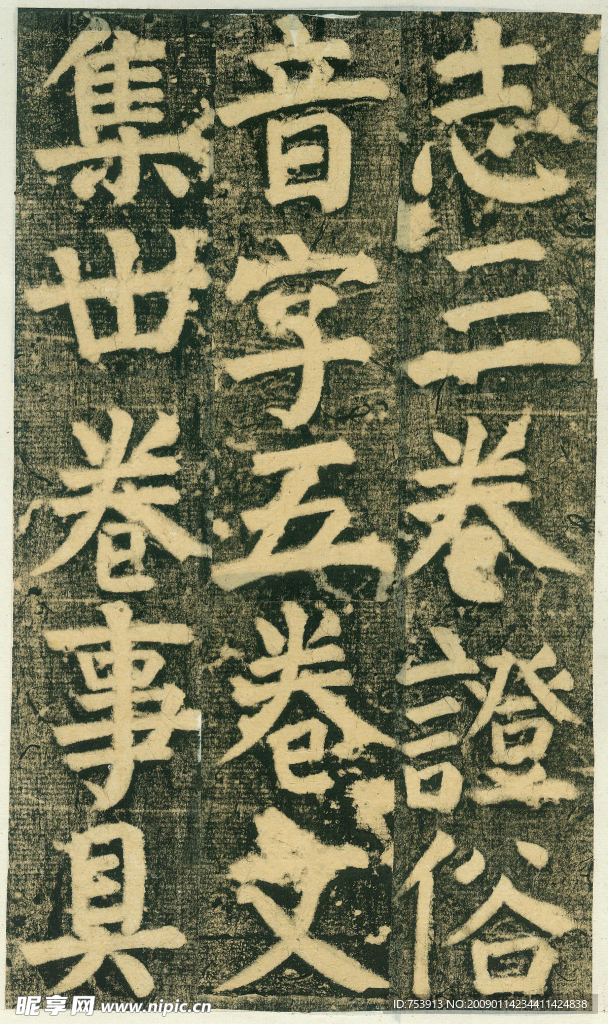 志三卷證俗
音字五卷文
集卌卷事具
昵享网 www.nipic.cn
ID:753913 NO:20090114234411424838